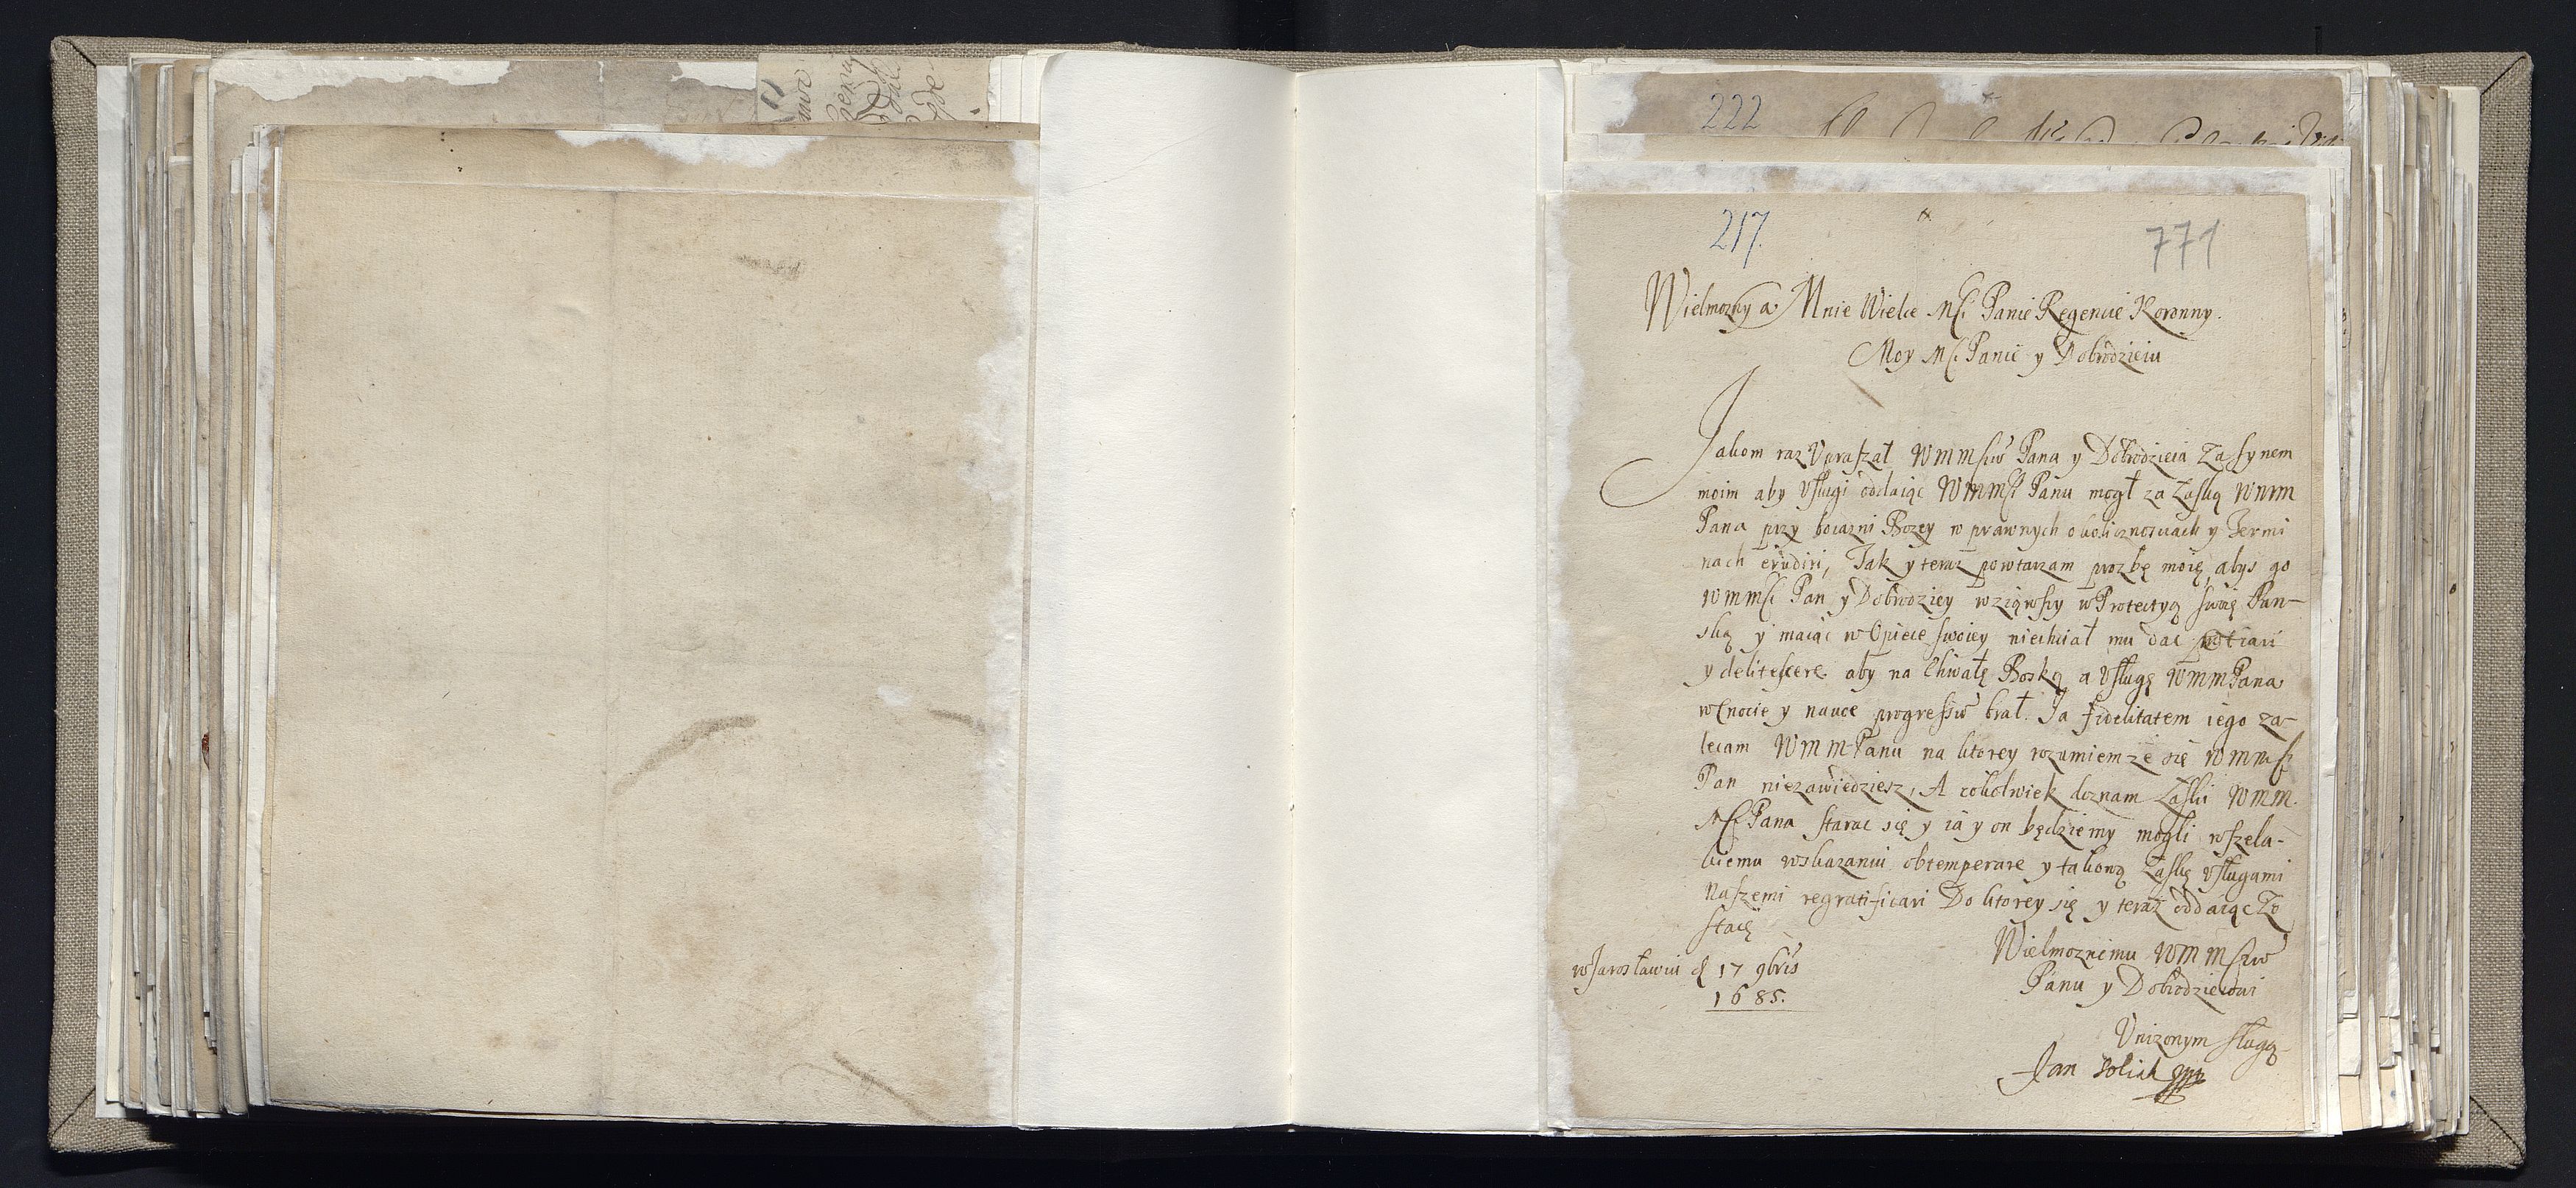 222
217.
771
Wielmozny a Mnie Wielce Msci Panie Regencie Koronny.
Moy Msci Panie y Dobrodzieiu
Jakom raz Upraszał WMMsciw Pana y Dobrodzieia Za synem
moim aby Usługi oddaiąc WMMsci Panu mogł za Łaską WMM
Pana przy boiazni Bozey w prawnych okolicznosciach y Termi
nach erudiri, Tak y teraz powtarzam prozbę moię, abys go
WMMsci Pan y Dobrodziey wziąwszy w Protectyą swoię Pan-
ską y maiąc w Opiece swoiey niechciał mu dac otiari
y delitescere aby na Chwałę Boską a Usługę WMMPana
w Cnocie y nauce progressuw brał. Ja fidelitatem iego za-
lecam WMM Panu na ktorey rozumiem ze się WMMsci
Pan niezawiedziesz, A cokolwiek doznam Łaski WMM.
Msci Pana starac się y ia y on będziemy mogli wszela-
kiemu wskazaniu obtemperare y takową Łaskę usługami
Naszemi regratificari Do ktorey się y teraz oddaiąc Zo
staię
Wielmoznemu WMMsciw
Panu y Dobrodzieiowi
w Jarosławiu d 17 9bris
1685.
Unizonym sługą
Jan Solich mp